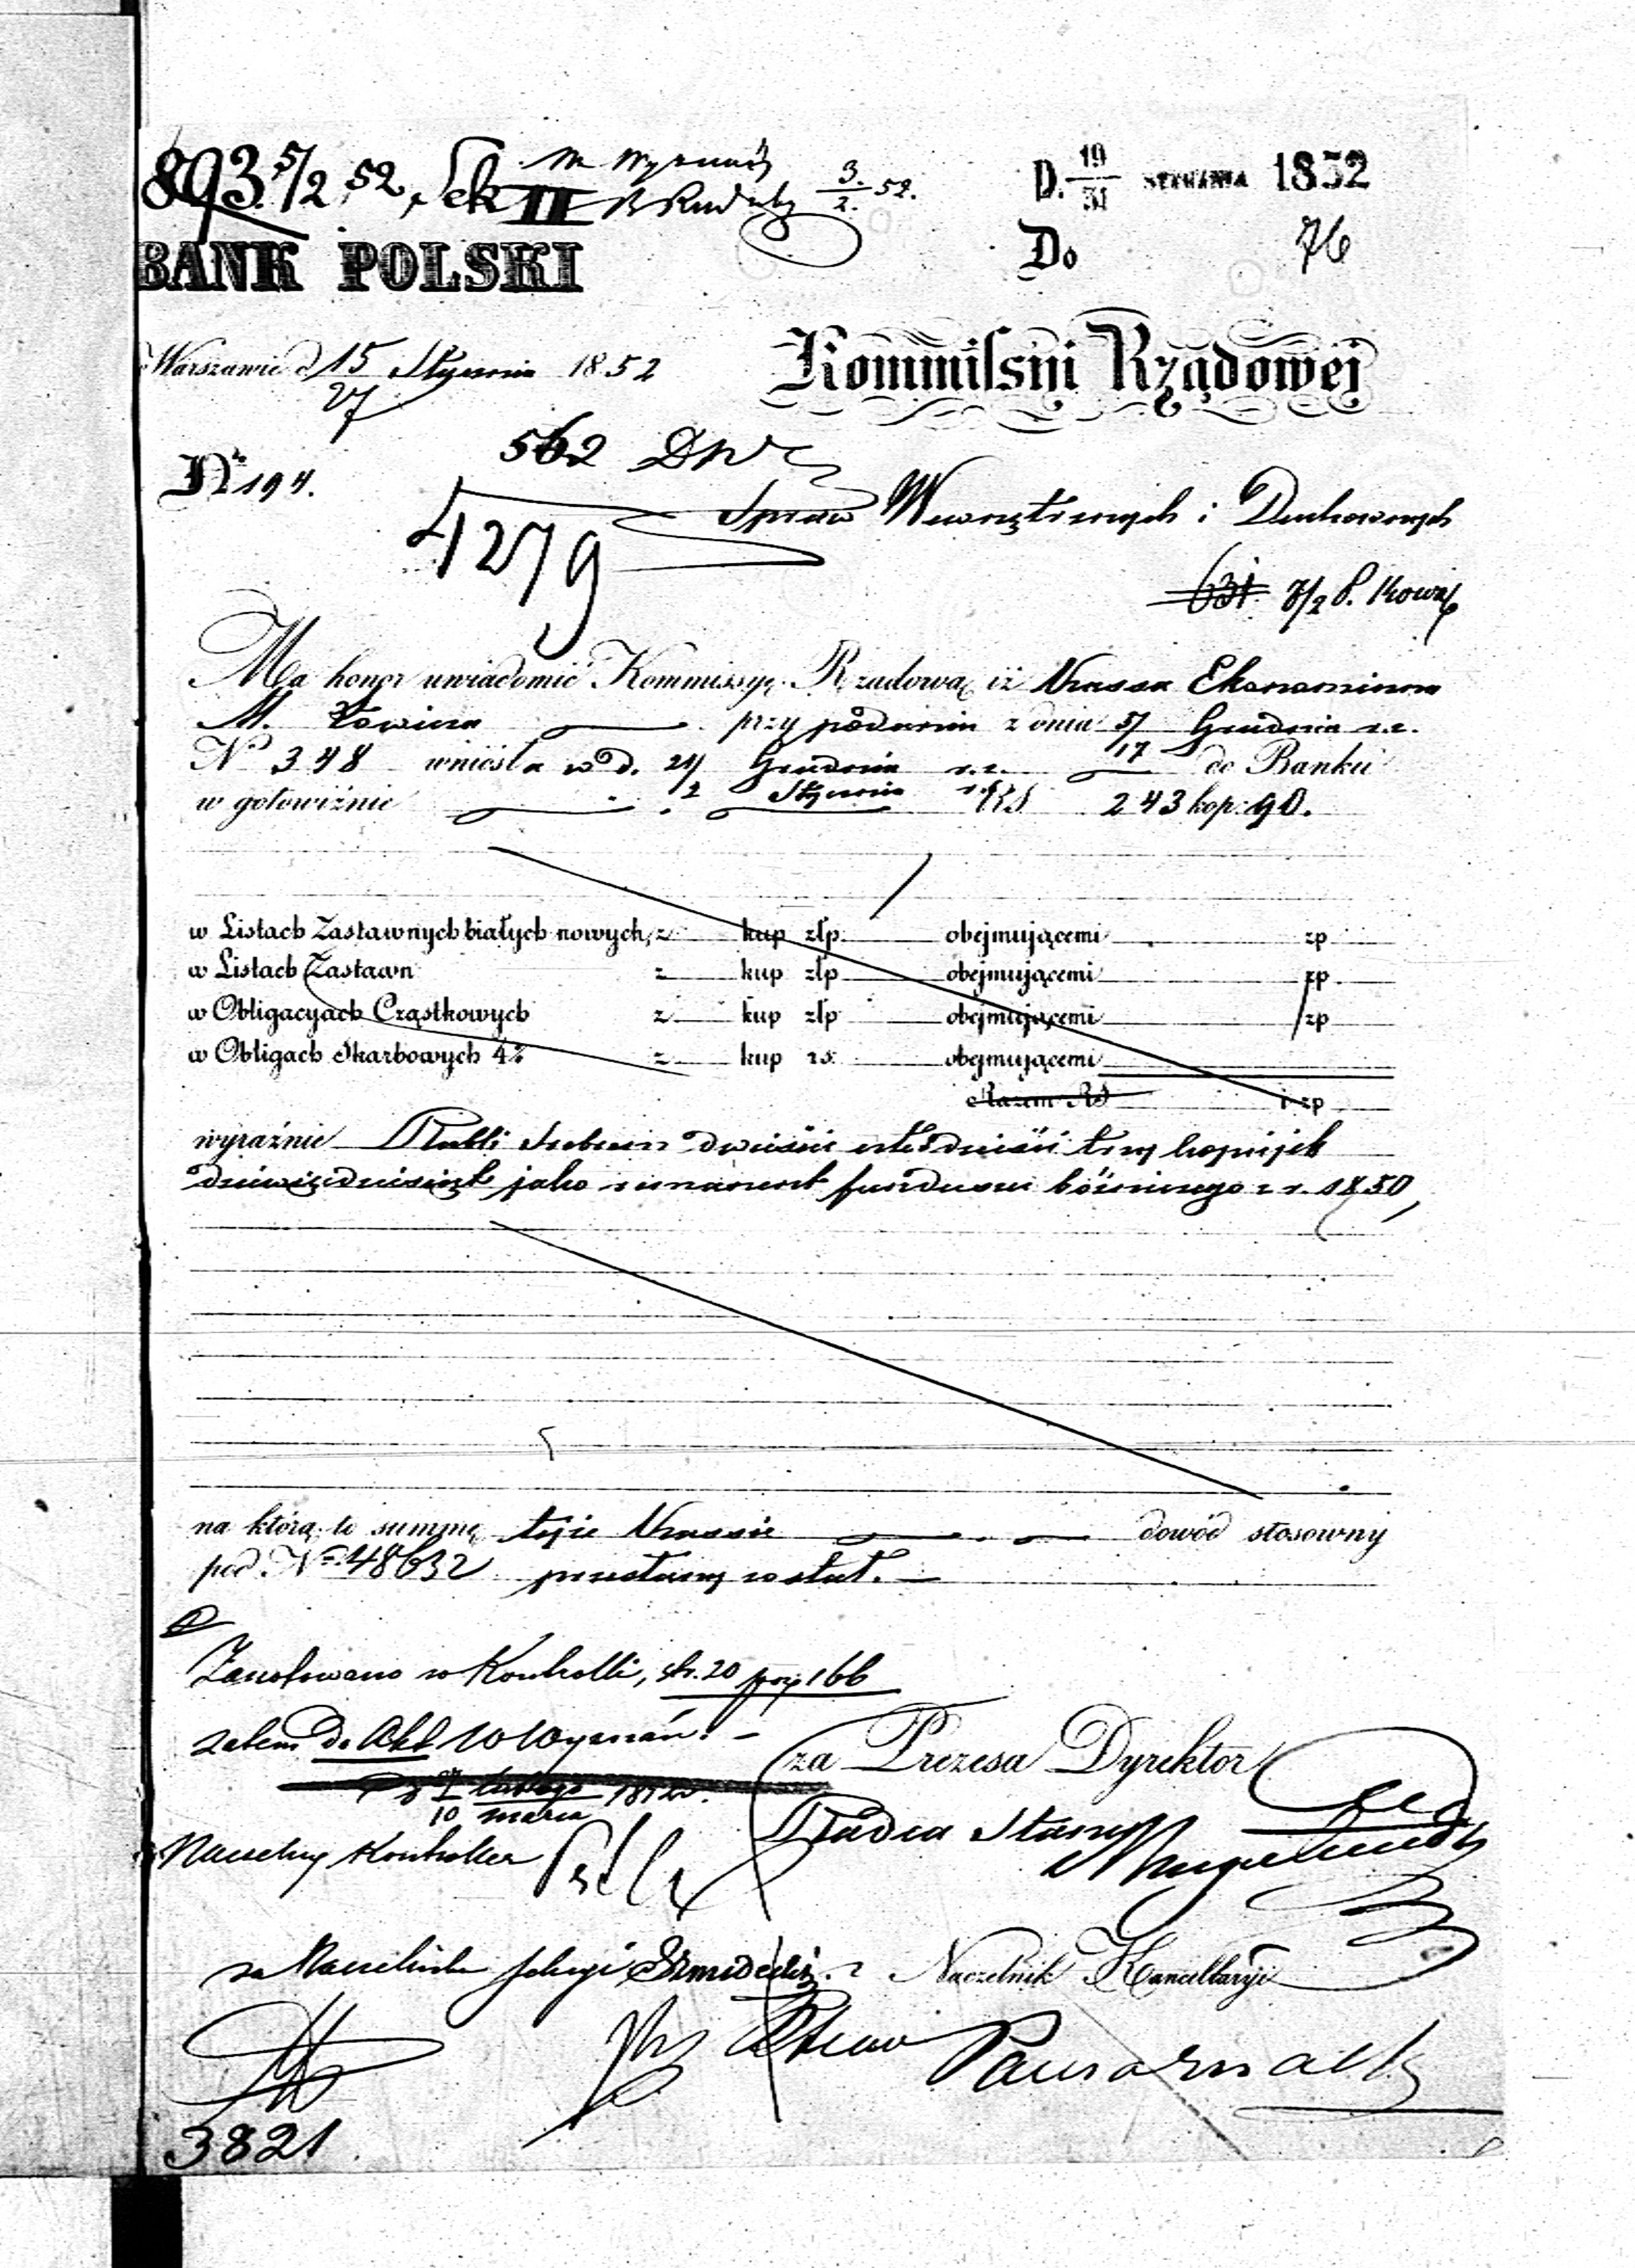 893. 5/2 52, Sek II
3/2. 52.
D. 19/31 STYCZNIA 1852
BANK POLSKI
Do 76
w Warszawie d 15/27 Stycznia 1852
Kommissyi Rządowej
562 DW
No 194.
Spraw Wewnętrznych i Duchownych
4279
631 7/2
Ma honor uwiadomić Kommissyę Rządową iż Kassa Ekonomiczna
M. Łowicza przy podaniu z dnia 5/17 Grudnia r.z.
No 348 wniosła w d. 21 Grudnia r.z. do Banku
w gotowiźnie 2 Stycznia r.b. RS 243 kop: 90.
w Listach Zastawnych białych nowych, z kup złp obejmującemi zp
w Listach Zastawn z kup złp obejmującemi zp
w Obligacyach Cząstkowych z kup złp obejmującemi zp
w Obligach Skarbowych 4% z kup rs. obejmującemi
Razem RS i zp
wyraźnie Rubli Srebrem dwieście czterdzieści trzy kopiejek
dziewięćdziesiąt jako remanent funduszu bóżniczego z r. 1850,
na którą to summę tejże Kassie dowód stosowny
pod No 48632 przesłany został.
Zanotowano w Kontrolli, str. 20 poz 166
zatem do Akt
10 marca
Naczelny Kontroller
za Prezesa Dyrektor
Radca Stanu
za Naczelnika Sekcyi
Naczelnik Kancellaryi
3821